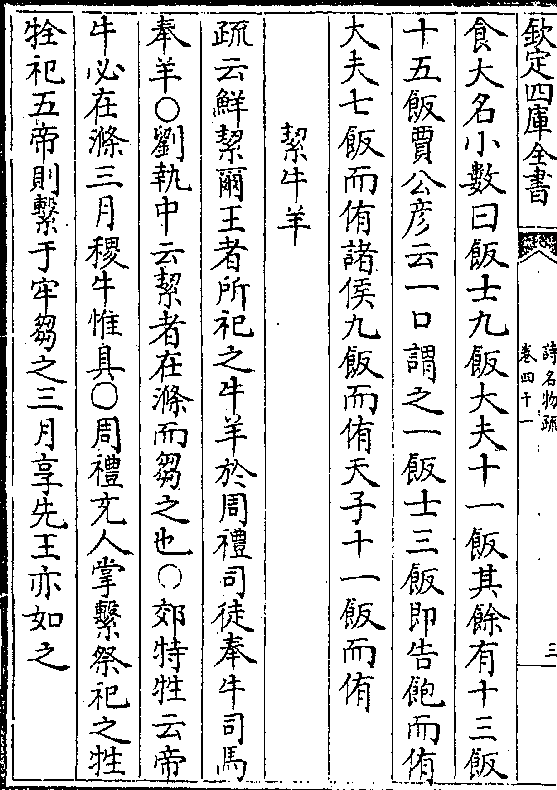 欽定四庫全書
詩名物疏
卷四十一
三
食大名小數曰飯士九飯大夫十一飯其餘有十三飯
十五飯賈公彦云一口謂之一飯士三飯即告飽而侑
大夫七飯而侑諸侯九飯而侑天子十一飯而侑
絜牛羊
疏云鮮絜爾王者所祀之牛羊於周禮司徒奉牛司馬
奉羊○劉執中云絜者在滌而芻之也○郊特牲云帝
牛必在滌三月稷牛惟具○周禮充人掌繫祭祀之牲
牷祀五帝則繫于牢芻之三月享先王亦如之